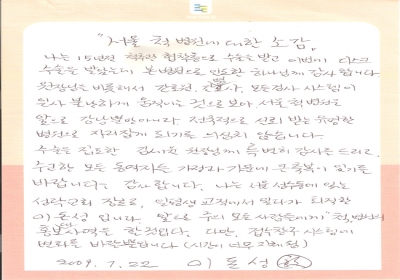 "서울 척 병원에 대한 소감"
나는 15년전 척추관 협착증으로 수술을 받고 이번에 디스크
수술을 받았는데 본병원으로 인도한 하나님께 감사 합니다.
원장님을 비롯해서 간호원, 모든검사 시스템이
일사 불난하게 움직이는 것으로 보아 서울 척병원은
앞으로 강남뿐만아니라 전국적으로 신뢰 받는 유명한
병원으로 자리잡게 되기를 의심치 않습니다.
수술을 집도한 원장님께 특별히 감사를 드리고,
수고한 모든 동역자들 가정과 가문에 큰축복이 있기를
바랍니다. 감사 합니다. 나는 서울 성수동에 있는
성락교회 장로로, 일평생 교직에서 일하다가 퇴직한
이돈성 입니다. 앞으로 주의 모든 사람들에게 "척"병원의
홍보대사역을 할것입니다. 다만, 접수창구 시스템에
변화를 바랄뿐입니다 (시간이 너무 지체됨)
2009. 7. 22 이돈성